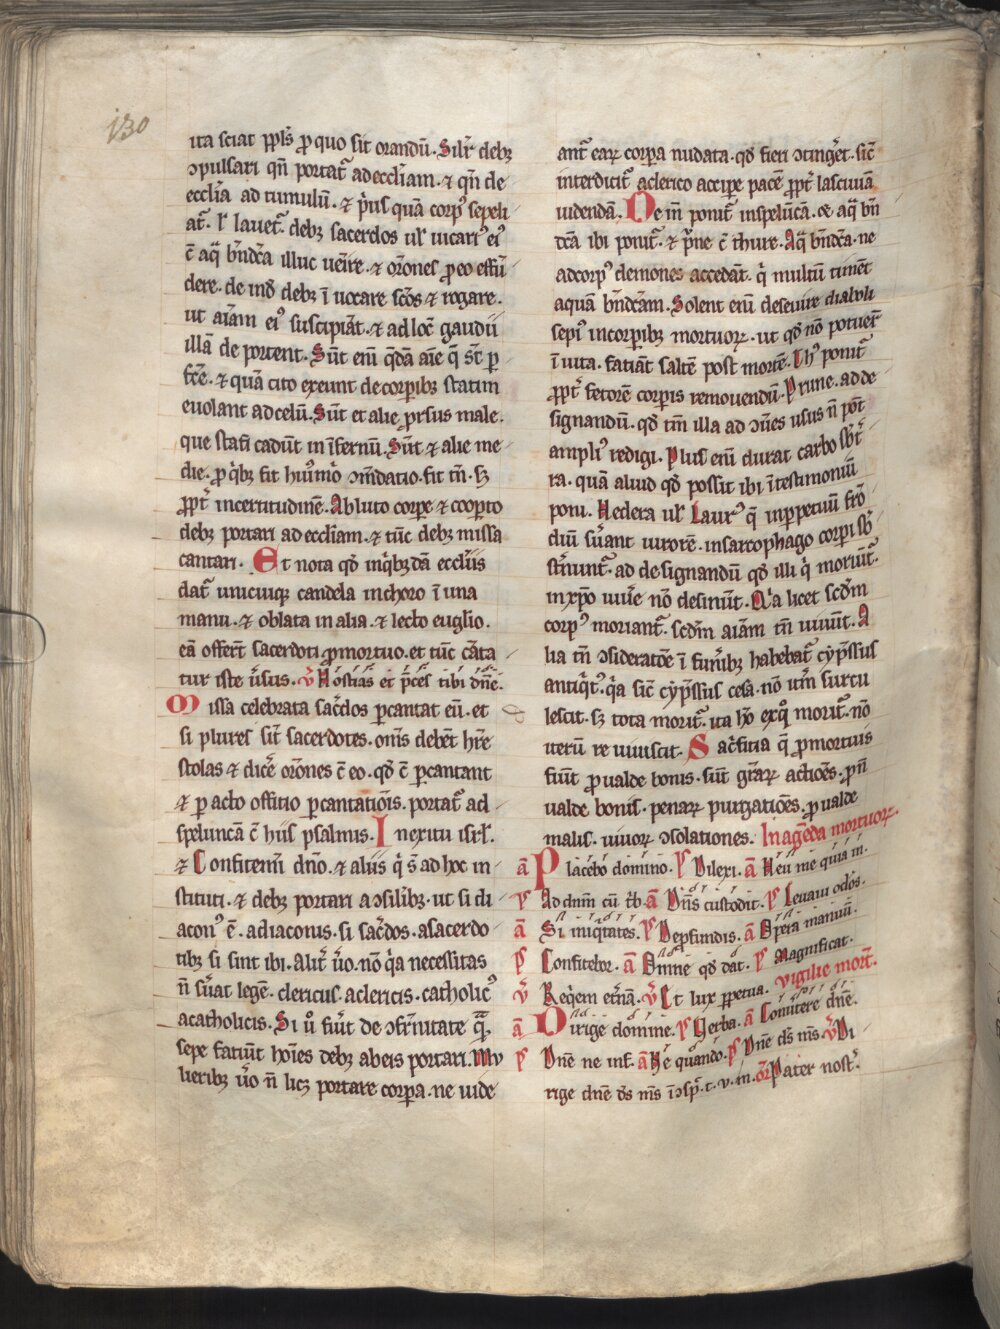 130
ita sciat ppl̄s ꝓ quo sit orandū. Silr̄ debꝫ
ↄpulsari qn̄ portat᷑ ad eccl̄iam. ⁊ qn̄ de
eccl̄ia ad tumulū. ⁊ pͥus quā corpꝰ sepeli
at᷑. ł lauet᷑. debꝫ sacerdos ul̄ uicariꝰ eiꝰ
c̄ aq̄ bn̄dc̄a illuc uēire. ⁊ or̄ones ꝓ eo effū
dere. de īn debꝫ ī uocare sc̄os ⁊ rogare.
ut aīam eiꝰ suscipiāt. ⁊ ad loc̄ gaudii
illā de portent. Sūt eni᷑ qͥdā aīe q̄ st̄ ꝑ
fc̄e. ⁊ quā cito exeunt de corpibꝫ statim
euolant ad celū. Sūt et alie ꝓrsus male.
que statī cadūt in īfernū. Sūt ⁊ alie me
die. ꝓ qͥbꝫ fit huiꝰmoͥ ↄm̄datio. fit tn̄. sꝫ
ꝓpt᷑ incertitudinē. Abluto corpe ⁊ cooꝑto
debꝫ portari ad eccl̄iam. ⁊ tūc debꝫ missa
cantari. Et nota qd̄ in qͥbꝫdā eccl̄iis
dat᷑ unicuiqꝫ candela in choro ī una
manu. ⁊ oblata in alia. ⁊ lecto euglio.
eā offerr̄t sacerdoti ꝓ mortuo. et tūc cāta
tur iste ūsus. ℣ Hostias et p̄ces tibi dn̄e.
Missa celebrata sac̄dos ꝑcantat eū. et
si plures sīt sacerdotes. om̄s debēt hr̄e
stolas ⁊ dicē or̄ones c̄ eo. qd̄ c̄ ꝑcantant
⁊ ꝑ acto officio ꝑcantatiōis. portat᷑ ad
speluncā c̄ hiis psalmis. In exitu isrł.
⁊ Confitemī dn̄o. ⁊ aliis qͥ s̄ ad hoc in
stituti. ⁊ debꝫ portari a ↄsilībꝫ. ut si di
aconꝰ ē. a diaconis. si sac̄dos. a sacerdo
tibꝫ si sint ibi. Alit᷑ ūo. nō qͥa necessitas
n̄ sūat legē. clericus. a clericis. catholicꝰ
a catholicis. Si uͦ fūit de ↄfr̄nitate q̄ꝫ.
sepe faciūt hoīes debꝫ ab eis portari. Mu
lieribꝫ ūo n̄ licꝫ portare corpa. ne uide
ant᷑ eaꝝ corpa nudata. qd̄ fieri ↄtinḡet. sic̄
interdicit᷑ a clerico acciꝑe pacē ꝓpt᷑ lasciuiā
uidendā. De in̄ ponit᷑ in spelūca. ⁊ aq̄ bn̄
dc̄a ibi ponit᷑. ⁊ pͥne c̄ thure. Aq̄ bn̄dc̄a. ne
ad corpꝰ demones accedāt. qͥ multū timēt
aquā bn̄dc̄am. Solent eni᷑ deseuire diaboli
sepiꝰ in corpibꝫ mortuoꝝ. ut qd̄ nō potuer̄t
ī uita. faciāt saltē post mortē. Thꝰ ponit᷑
ꝓpt᷑ fetorē corpis remouendū. Prune. ad de
signandū. qd̄ t̄m illa ad ōnes usus n̄ pōt
ampliꝰ redigi. Plus eni᷑ durat carbo sb̄ t᷑
ra. quā aliud qd̄ possit ibi ī testimoniū
poni. Hedera ul̄ Laurꝰ q̄ in ꝑpetuū fro᷑
diū sūant uirorē. in sarcophago corpi sb̄
st᷑nunt᷑. ad designandū qd̄ illi qͥ moriūt᷑.
in xp̄o uiūe nō desinūt. Qͥa licet scdm̄
corpꝰ moriant᷑. scdm̄ aīam tn̄ uiuūt. A
lia tn̄ ↄsideratōe ī funībꝫ habebat᷑ cyp̄ssus
antiqͥtꝰ. qͥa sic̄ cyp̄ssus cesa. nō ut̄m surcu
lescit. sꝫ tota morit᷑. ita hō ex qͦ morit᷑. nō
iterū re uiuiscit. Sac̄ficia q̄ ꝓ mortuis
fiūt ꝓ ualde bonis. sūt gr̄aꝝ actiōes. ꝓ n̄
ualde bonis. penaꝝ purgatiōes. ꝓ ualde
malis. uiuoꝝ ↄsolationes. In agēda mortuoꝝ.
ā Placebo domino. P̄ Dilexi. ā Heu me quia in.
P̄ Ad dn̄m cū t᷑b. ā Dn̄s custodit. P̄ Leuaui oclos.
ā Si iniqͥtates. P̄ De ꝓfundis. ā Opera manuū.
P̄ Confitebor. ā Omne qd̄ dat. P̄ Magnificat.
℣ Reqͥem et᷑nā. ℣ Et lux ꝑpetua. vigilie mort᷑.
ā Dirige domine. P̄ Verba. ā Conuertere dn̄e.
P̄ Dn̄e ne in f. ā Ne quando. P̄ Dn̄e ds̄ ms̄. ℣ Di
rige dn̄e ds̄ ms̄ ī ↄsp̄. t. v. m. or̄ Pater nost᷑.